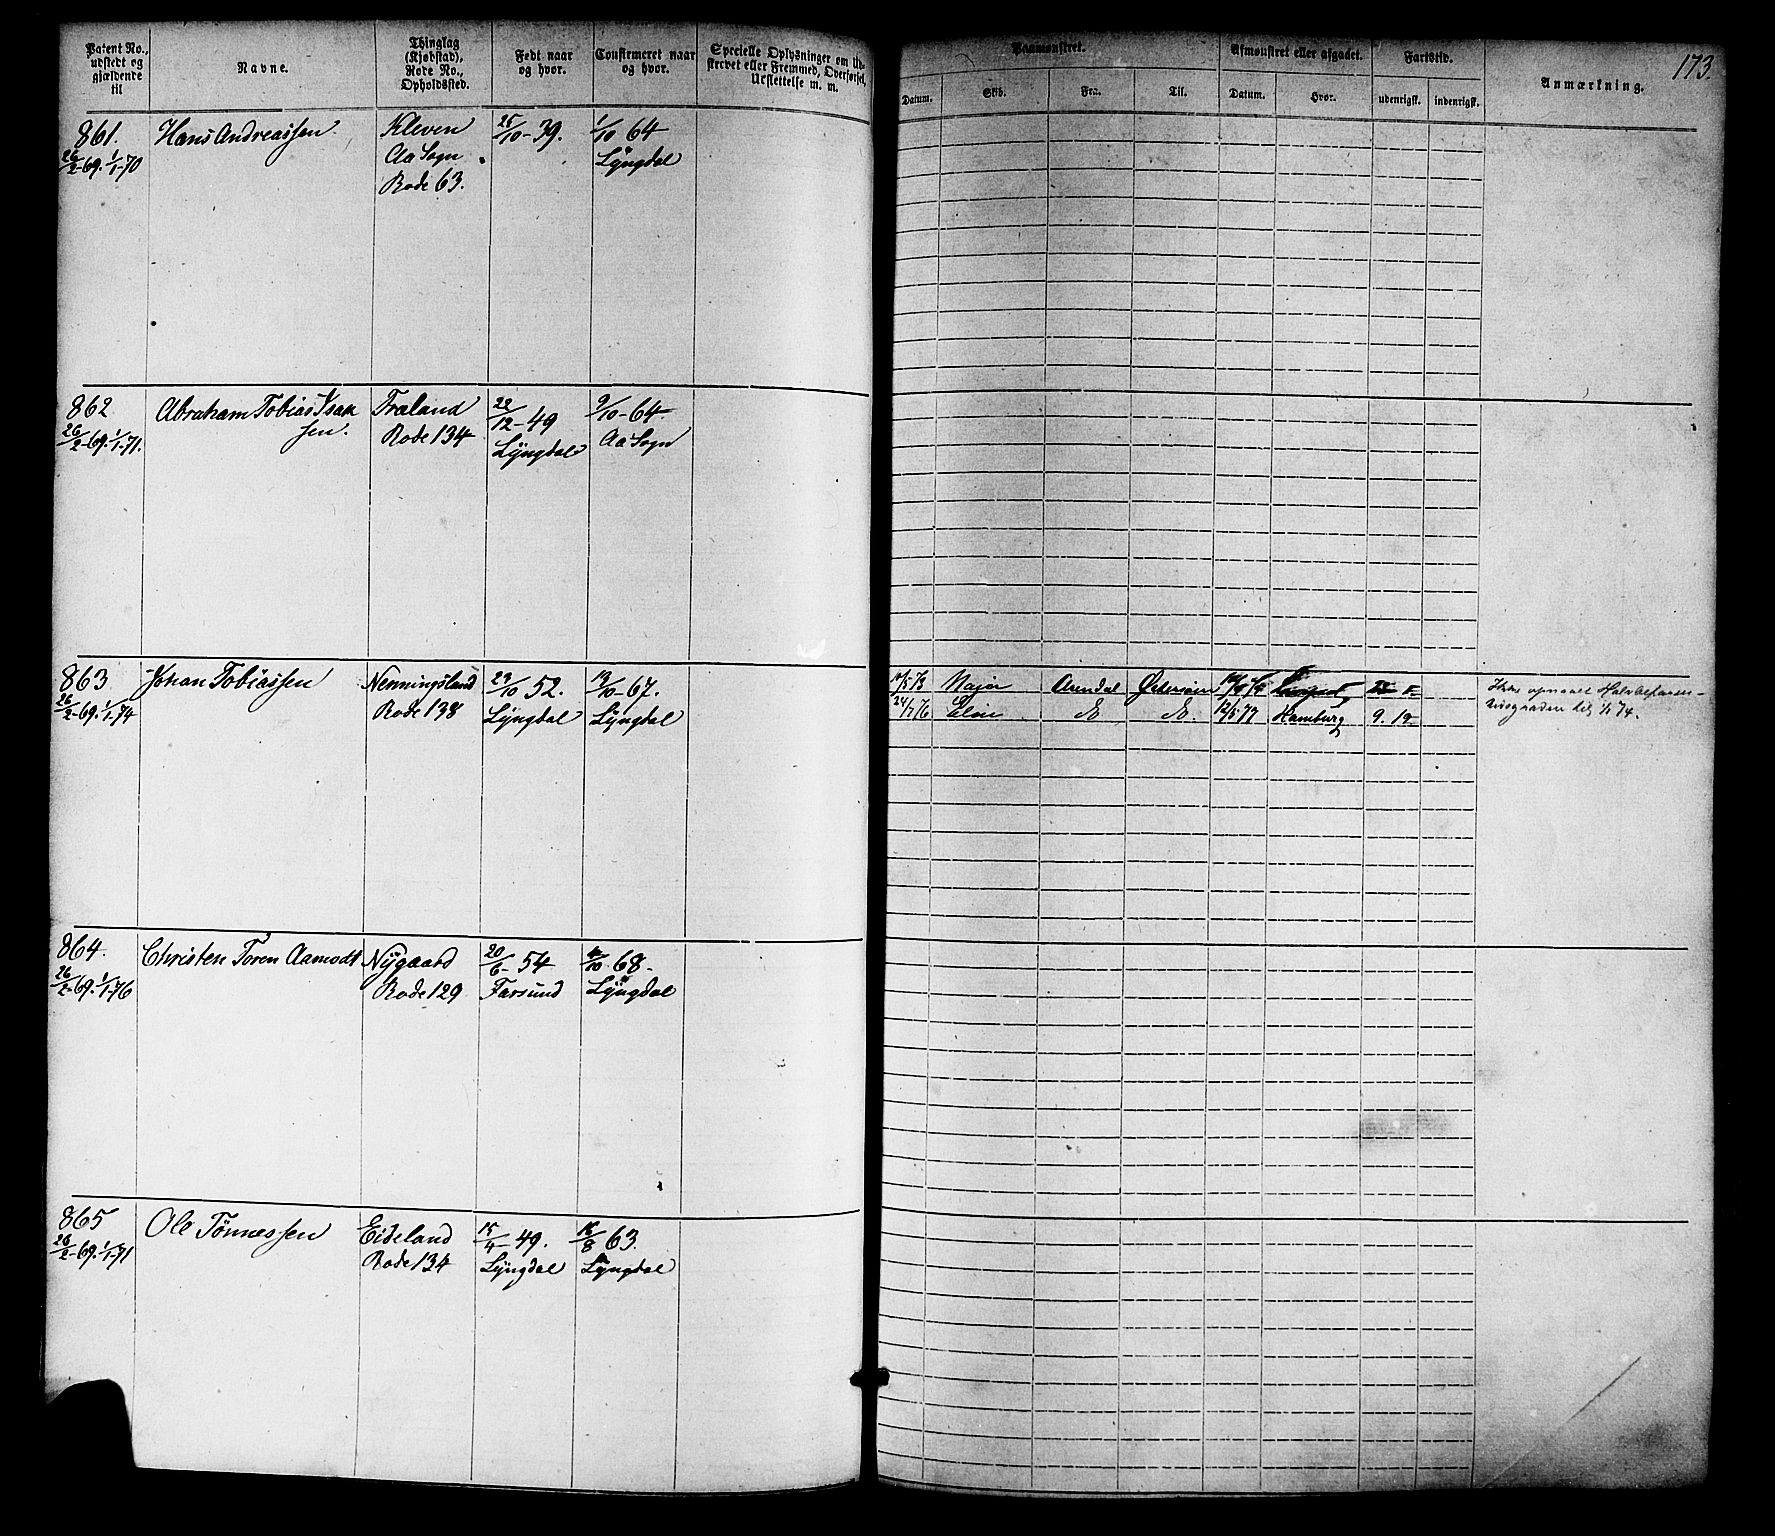 Patent No., udstedt og gjældende til
Navne.
Thinglag (Kjøbstad), Rode No., Opholdssted.
Født naar og hvor.
Confirmeret naar og hvor.
Specielle Oplysninger om Udskrevet eller Fremmed, Overførsel, Udslettelse m. m.
Paamønstret.
Datum.
Skib.
Fra.
Til.
Afmønstret eller afgaaet.
Datum.
Hvor.
Fartstid.
udenrigsk.
indenrigsk.
Anmærkning.
173.
861.
26/2-69. 1/1-70
Hans Andreassen
Kleven
Aa Sogn
Rode 63.
25/10-39.
1/10 64
Lÿngdal
862
26/2-69. 1/1-71.
Abraham Tobias Isak
sen.
Træland
Rode 134
22/12-49
Lÿngdal
9/10-64
Aa Sogn
863
26/2-69. 1/1-74
Johan Tobiassen
Nenningsland
Rode 138
29/10 52.
Lÿngdal
13/10-67.
Lÿngdal
Major
Arendal
Østersøen
24/7 76
do
do.
12/5 77
Hamburg
9. 19
864.
26/2-69. 1/1-76
Christen Toren Aamodt
Nÿgaard
Rode 129
20/6-54
Farsund
68
Lÿngdal
865
26/2-69. 1/1-71
Ole Tønnessen
Eideland
Rode 134
15/4-49.
Lÿngdal
16/8 63.
Lÿngdal